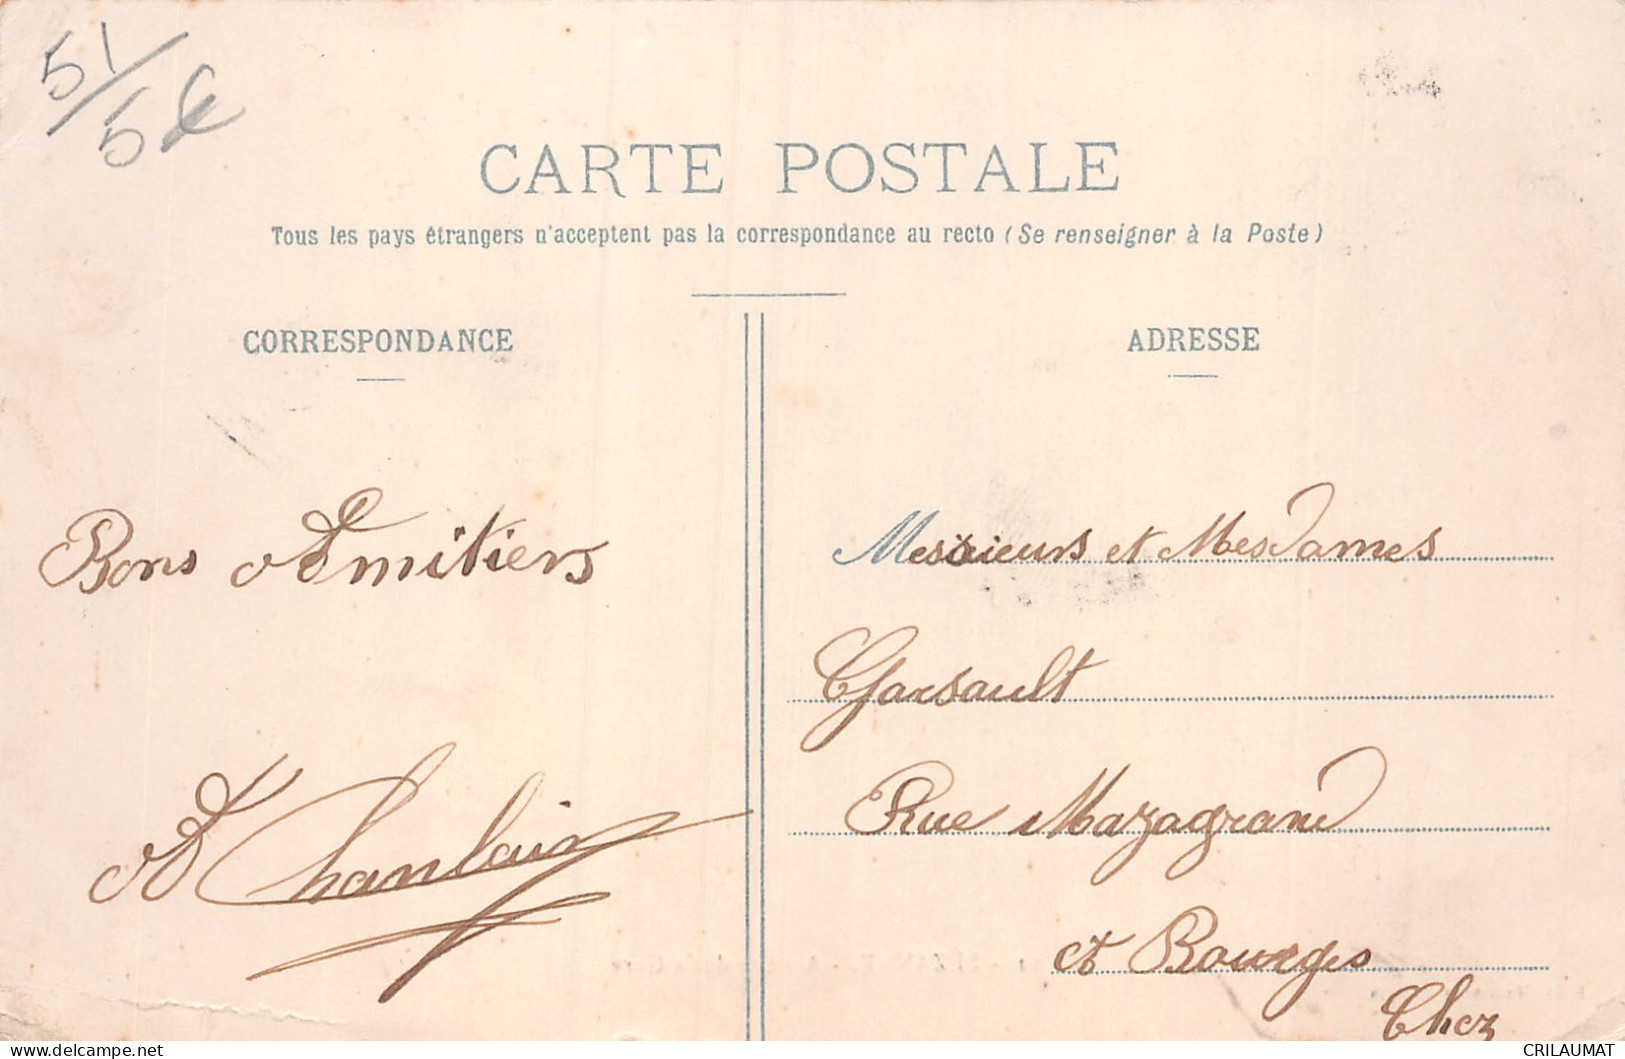 51/5€
CARTE POSTALE
Tous les pays étrangers n'acceptent pas la correspondance au recto (Se renseigner à la Poste)
CORRESPONDANCE
ADRESSE
Bons Amitiers
A Chanlain
Messieurs et MesDames
Garsault
Rue Mazagrand
et Bourges
Cher
CRILAUMAT
delcampe.net